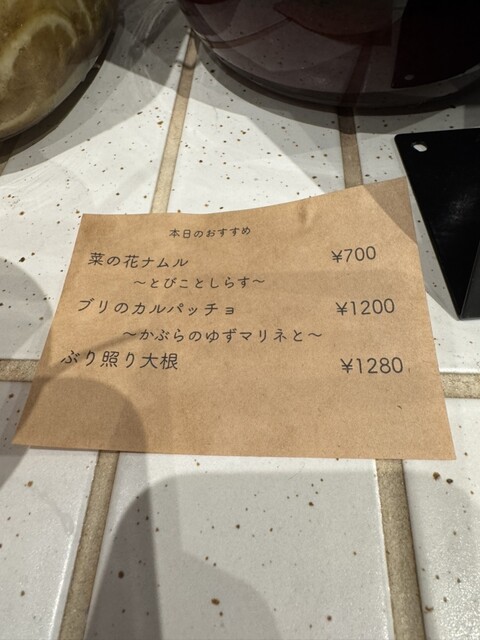 本日のおすすめ
菜の花ナムル ¥700
〜とびことしらす〜
ブリのカルパッチョ ¥1200
〜かぶらのゆずマリネと〜
ぶり照り大根 ¥1280